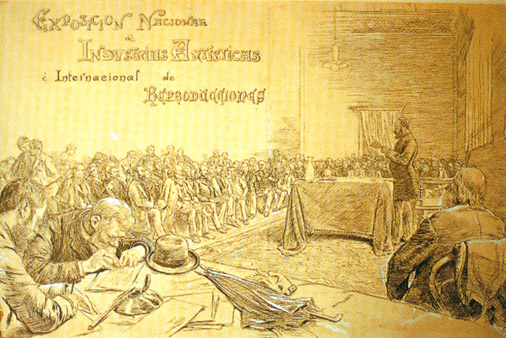 Exposición Nacional
de
Industrias Artísticas
é Internacional de
Reproducciones